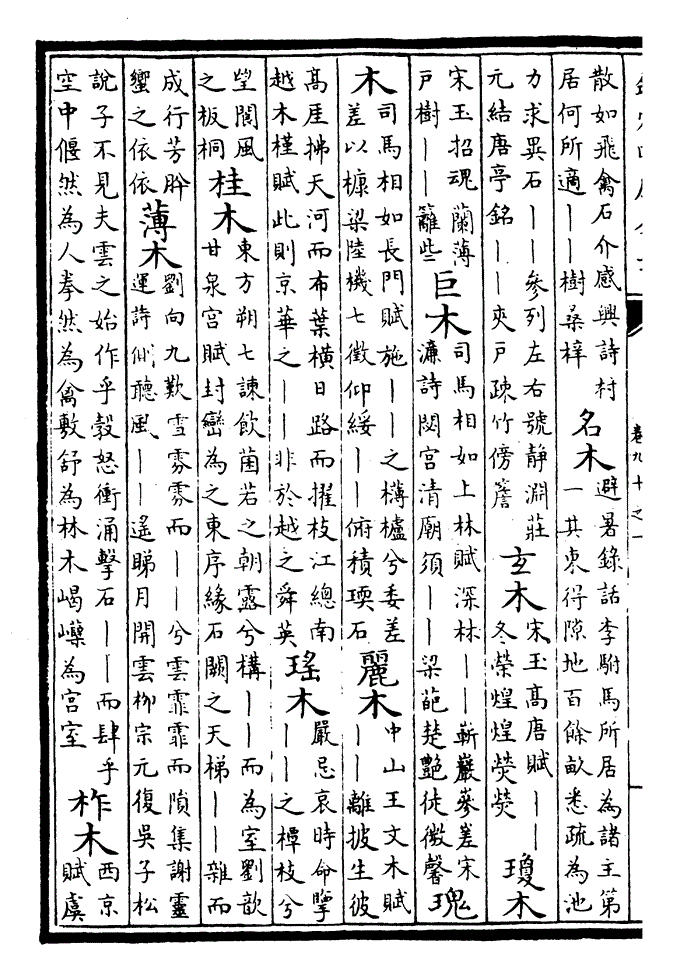 卷九十之一
散如飛禽石介感興詩村
居何所適——樹桑梓
名木
避暑録話李駙馬所居為諸主第
一其東得隙地百餘畝悉疏為池
力求異石——參列左右號靜淵莊
元結唐亭銘——夾戸疎竹傍簷
玄木
宋玉高唐賦——
冬榮煌煌熒熒
瓊木
宋玉招魂蘭薄
戸樹——籬些
巨木
司馬相如上林賦深林——嶄巖參差宋
濂詩閟宮清廟須——梁葩楚艷徒微馨
瑰
木
司馬相如長門賦施——之欂櫨兮委差
差以槺梁陸機七徴仰綏——俯積瓀石
麗木
中山王文木賦
——離披生彼
高厓拂天河而布葉横日路而擢枝江總南
越木槿賦此則京華之——非於越之舜英
瑤木
嚴忌哀時命擥
——之橝枝兮
望閬風
之板桐
桂木
東方朔七諫飲菌若之朝露兮構——而為室劉歆
甘泉宮賦封巒為之東序緣石闕之天梯——雜而
成行芳肸
蠁之依依
薄木
劉向九歎雪雰雰而——兮雲霏霏而隕集謝靈
運詩側聽風——遙睇月開雲柳宗元復吳子松
說子不見夫雲之始作乎㝅怒衝涌擊石——而肆乎
空中偃然為人拳然為禽敷舒為林木嵑㠔為宮室
柞木
西京
賦虞